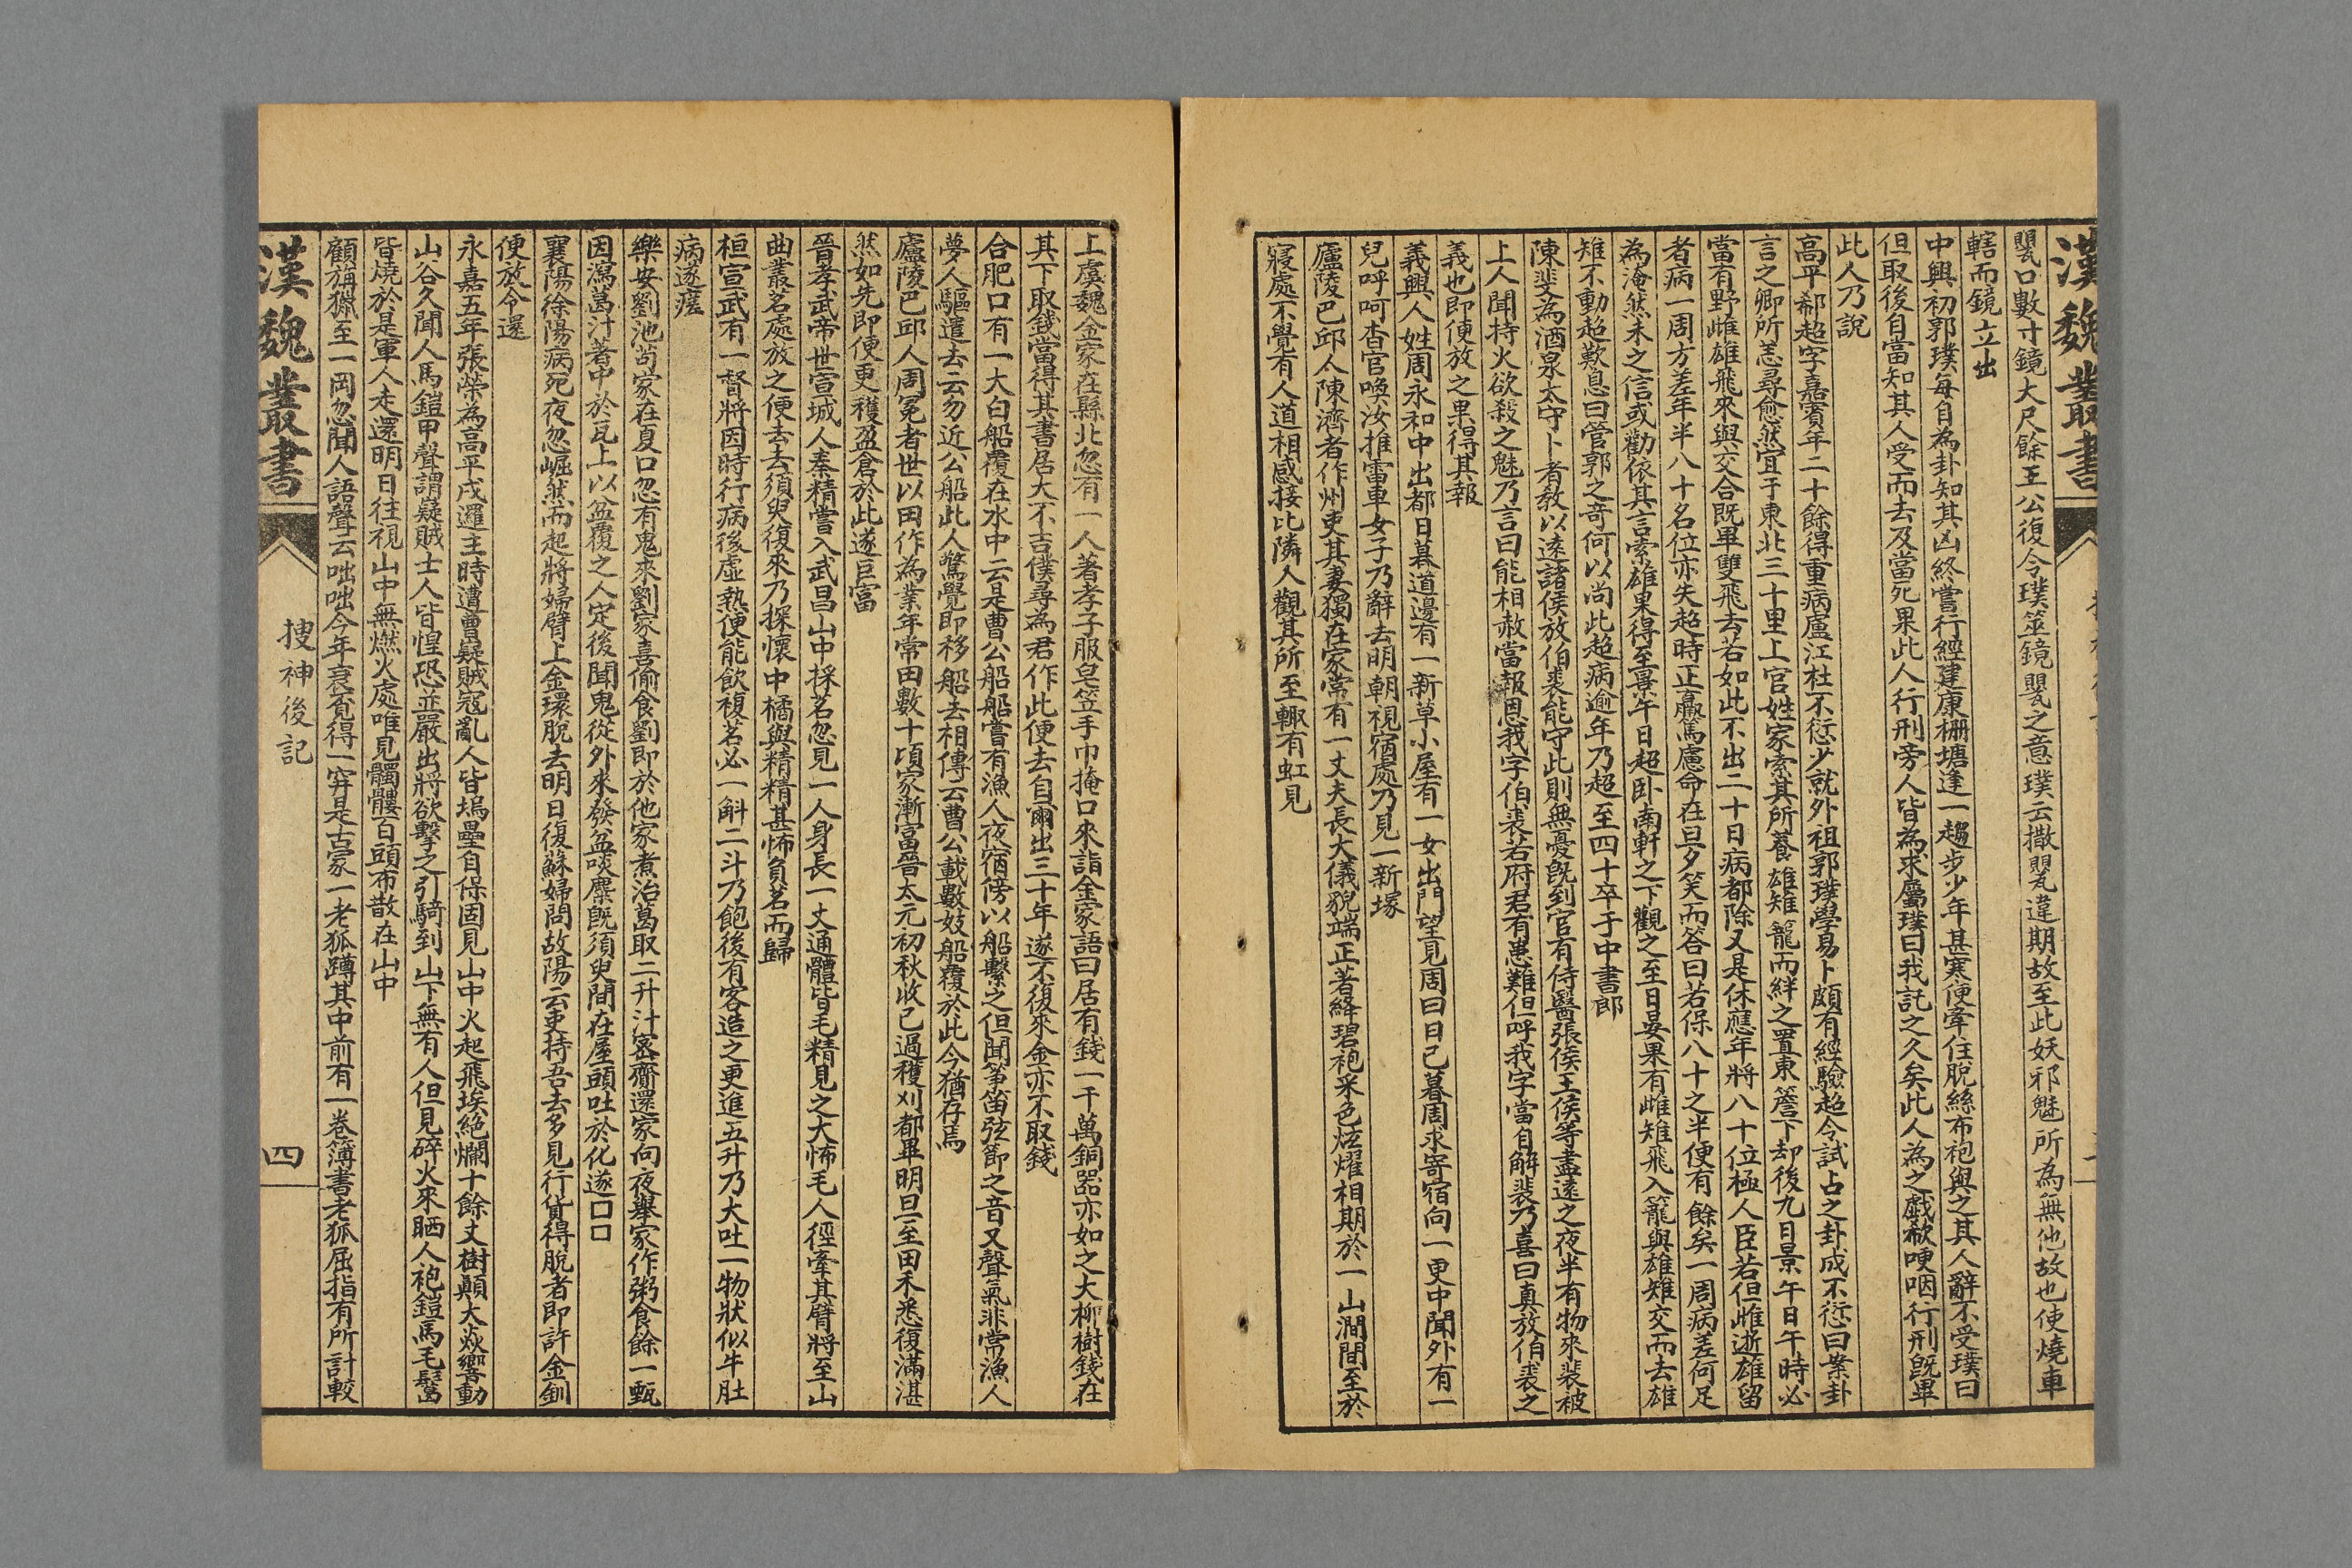 漢魏叢書
甖口數寸鏡大尺餘王公復令璞筮鏡甖之意璞云撒甖違期故至此妖邪魅所為無他故也使燒車
轄而鏡立出
中興初郭璞每自為卦知其凶終嘗行經建康柵塘逢一趨步少年甚寒便牽住脫絲布袍與之其人辭不受璞曰
但取後自當知其人受而去及當死果此人行刑旁人皆為求屬璞曰我託之久矣此人為之歔欷哽咽行刑既畢
此人乃說
高平郗超字嘉賓年二十餘得重病盧江杜不愆少就外祖郭璞學易卜頗有經驗超令試占之卦成不愆曰案卦
言之卿所恙尋愈然宜于東北三十里上官姓家索其所養雄雉籠而絆之置東簷下却後九日景午日午時必
當有野雌雄飛來與交合既畢雙飛去若如此不出二十日病都除又是休應年將八十位極人臣若但雌逝雄留
者病一周方差年半八十名位亦失超時正羸篤慮命在旦夕笑而答曰若保八十之半便有餘矣一周病差何足
為淹然未之信或勸依其言索雄果得至景午日超卧南軒之下觀之至日晏果有雌雉飛入籠與雄雉交而去雄
雉不動超歎息曰管郭之奇何以尚此超病逾年乃起至四十卒于中書郎
陳斐為酒泉太守卜者敎以遠諸侯放伯裘能守此則無憂旣到官有侍醫張侯王侯等盡遠之夜半有物來裴被
上人聞持火欲殺之魅乃言曰能相赦當報恩我字伯裘若府君有患難但呼我字當自解裴乃喜曰真放伯裘之
義也即便放之果得其報
義興人姓周永和中出都日暮道邊有一新草小屋有一女出門望見周曰日已暮周求寄宿向一更中聞外有一
兒呼呵杳官喚汝推雷車女子乃辭去明朝視宿處乃見一新塚
廬陵巴邱人陳濟者作州吏其妻獨在家常有一丈夫長大儀貌端正著絳碧袍采色炫燿相期於一山澗間至於
寢處不覺有人道相感接比隣人觀其所至輒有虹見
上虞魏金家在縣北忽有一人著孝子服皂笠手巾掩口來詣金家語曰居有錢一千萬銅器亦如之大柳樹錢在
其下取錢當得其書居大不吉僕尋為君作此便去自爾出三十年遂不復來金亦不取錢
合肥口有一大白船覆在水中云是曹公船船嘗有漁人夜宿傍以船繫之但聞箏笛弦節之音又聲氣非常漁人
夢人驅遣去云勿近公船此人驚覺即移船去相傳云曹公載數妓船覆於此今猶存焉
廬陵巴邱人周冕者世以田作為業年常田數十頃家漸富晉太元初秋收已過穫刈都畢明旦至田禾悉復滿湛
然如先即便更穫盈倉於此遂巨富
晉孝武帝世宣城人秦精嘗入武昌山中採茗忽見一人身長一丈通體皆毛精見之大怖毛人徑牽其臂將至山
曲叢茗處放之便去去須臾復來乃探懷中橘與精精甚怖負茗而歸
桓宣武有一督將因時行病後虛熱便能飲複茗必一斛二斗乃飽後有客造之更進五升乃大吐一物狀似牛肚
病遂瘥
樂安劉池苟家在夏口忽有鬼來劉家喜偷食劉即於他家煮治葛取二升汁密齎還家向夜舉家作粥食餘一甄
因瀉葛汁著中於瓦上以盆覆之人定後聞鬼從外來發盆啖糜旣須臾間在屋頭吐於化遂口口
襄陽徐陽病死夜忽崛然而起將婦臂上金環脫去明日復蘇婦問故陽云吏持吾去多見行貨得脫者即許金釧
便放令還
永嘉五年張榮為高平戍邏主時遭曹嶷賊寇亂人皆塢壘自保固見山中火起飛埃絕爛十餘丈樹顛大焱響動
山谷久聞人馬鎧甲聲謂嶷賊士人皆惶恐並嚴出將欲擊之引騎到山下無有人但見碎火來晒人袍鎧馬毛鬣
皆燒於是軍人走還明日往視山中無燃火處唯見髑髏百頭布散在山中
顧旃獵至一岡忽聞人語聲云咄咄今年衰覓得一穽是古冢一老狐蹲其中前有一卷簿書老狐屈指有所計較
漢魏叢書
搜神後記
四